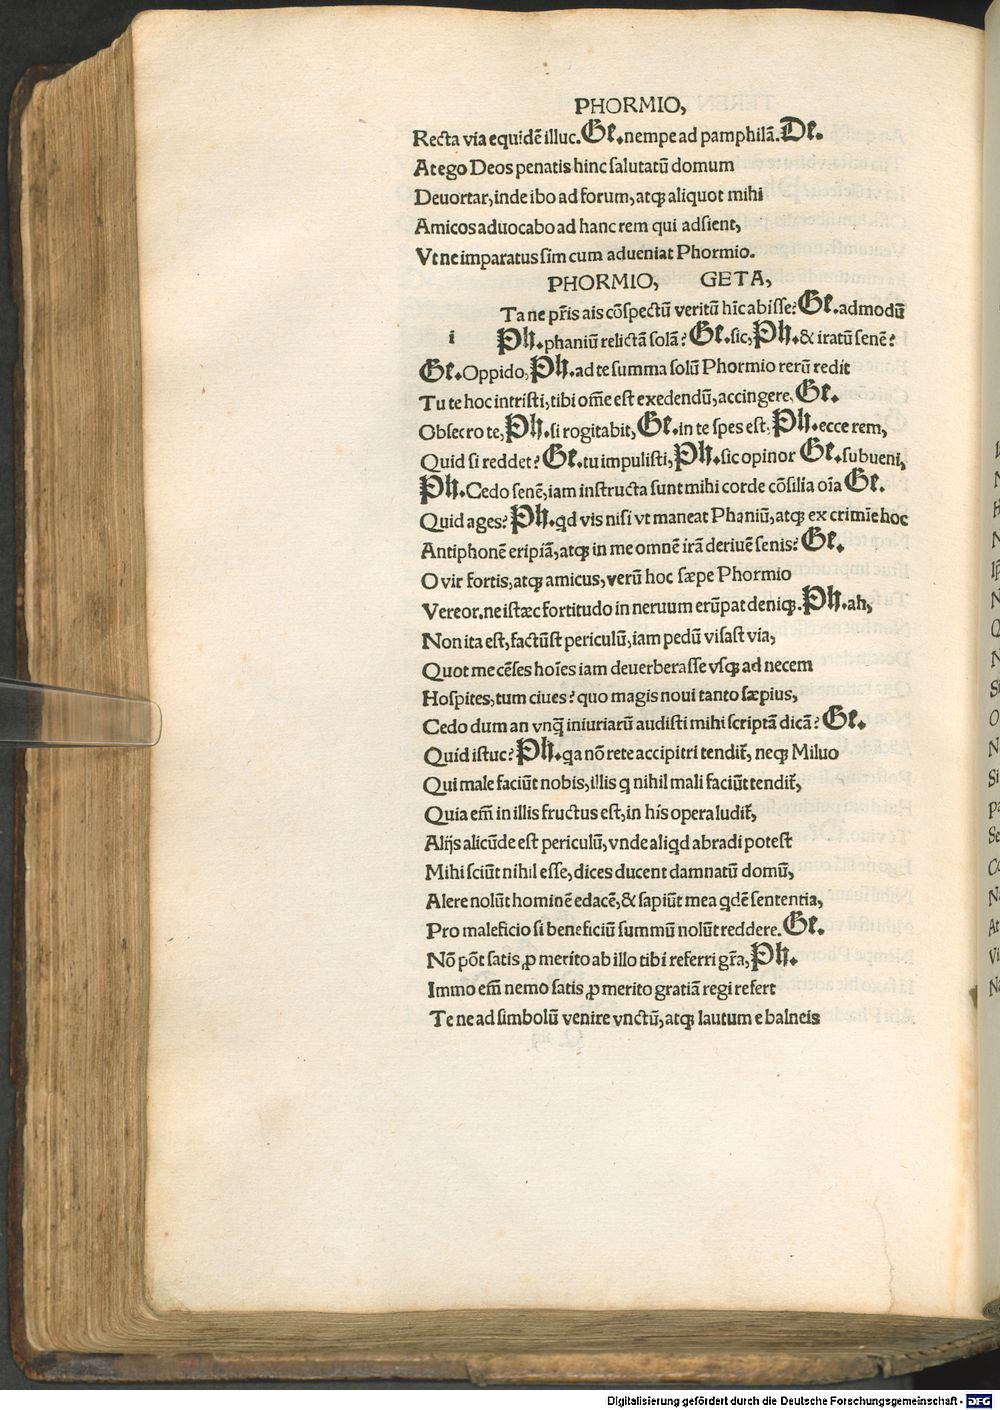 PHORMIO,
Recta via equidē illuc. Ge. nempe ad pamphilā. De.
At ego Deos penatis hinc salutatū domum
Deuortar, inde ibo ad forum, atq; aliquot mihi
Amicos aduocabo ad hanc rem qui adsient,
Vt ne imparatus sim cum adueniat Phormio.
PHORMIO, GETA,
Ta ne pr̄is ais cōspectū veritū hīc abisse? Ge. admodū
i Ph. phaniū relictā solā? Ge. sic, Ph. & iratū senē?
Ge. Oppido, Ph. ad te summa solū Phormio rerū redit
Tu te hoc intristi, tibi om̄e est exedendū, accingere, Ge.
Obsecro te, Ph. si rogitabit, Ge. in te spes est, Ph. ecce rem,
Quid si reddet? Ge. tu impulisti, Ph. sic opinor Ge. subueni,
Ph. Cedo senē, iam instructa sunt mihi corde cōsilia oīa Ge.
Quid ages? Ph. qd vis nisi vt maneat Phaniū, atq; ex crimīe hoc
Antiphonē eripiā, atq; in me omnē irā deriuē senis? Ge.
O vir fortis, atq; amicus, verū hoc sæpe Phormio
Vereor, ne istæc fortitudo in neruum erūpat deniq;. Ph. ah,
Non ita est, factūst periculū, iam pedū visast via,
Quot me cēses hoīes iam deuerberasse vsq; ad necem
Hospites, tum ciues? quo magis noui tanto sæpius,
Cedo dum an vnq̄ iniuriarū audisti mihi scriptā dicā? Ge.
Quid istuc? Ph. qa nō rete accipitri tendit̄, neq; Miluo
Qui male faciūt nobis, illis q nihil mali faciūt tendit̄,
Quia em̄ in illis fructus est, in his opera ludit̄,
Alijs alicūde est periculū, vnde aliqd abradi potest
Mihi sciūt nihil esse, dices ducent damnatū domū,
Alere nolūt hominē edacē, & sapiūt mea qdē sententia,
Pro maleficio si beneficiū summū nolūt reddere. Ge.
Nō pōt satis ꝓ merito ab illo tibi referri gr̄a, Ph.
Immo em̄ nemo satis ꝓ merito gratiā regi refert
Te ne ad simbolū venire vnctū, atq; lautum e balneis
Digitalisierung gefördert durch die Deutsche Forschungsgemeinschaft - DFG